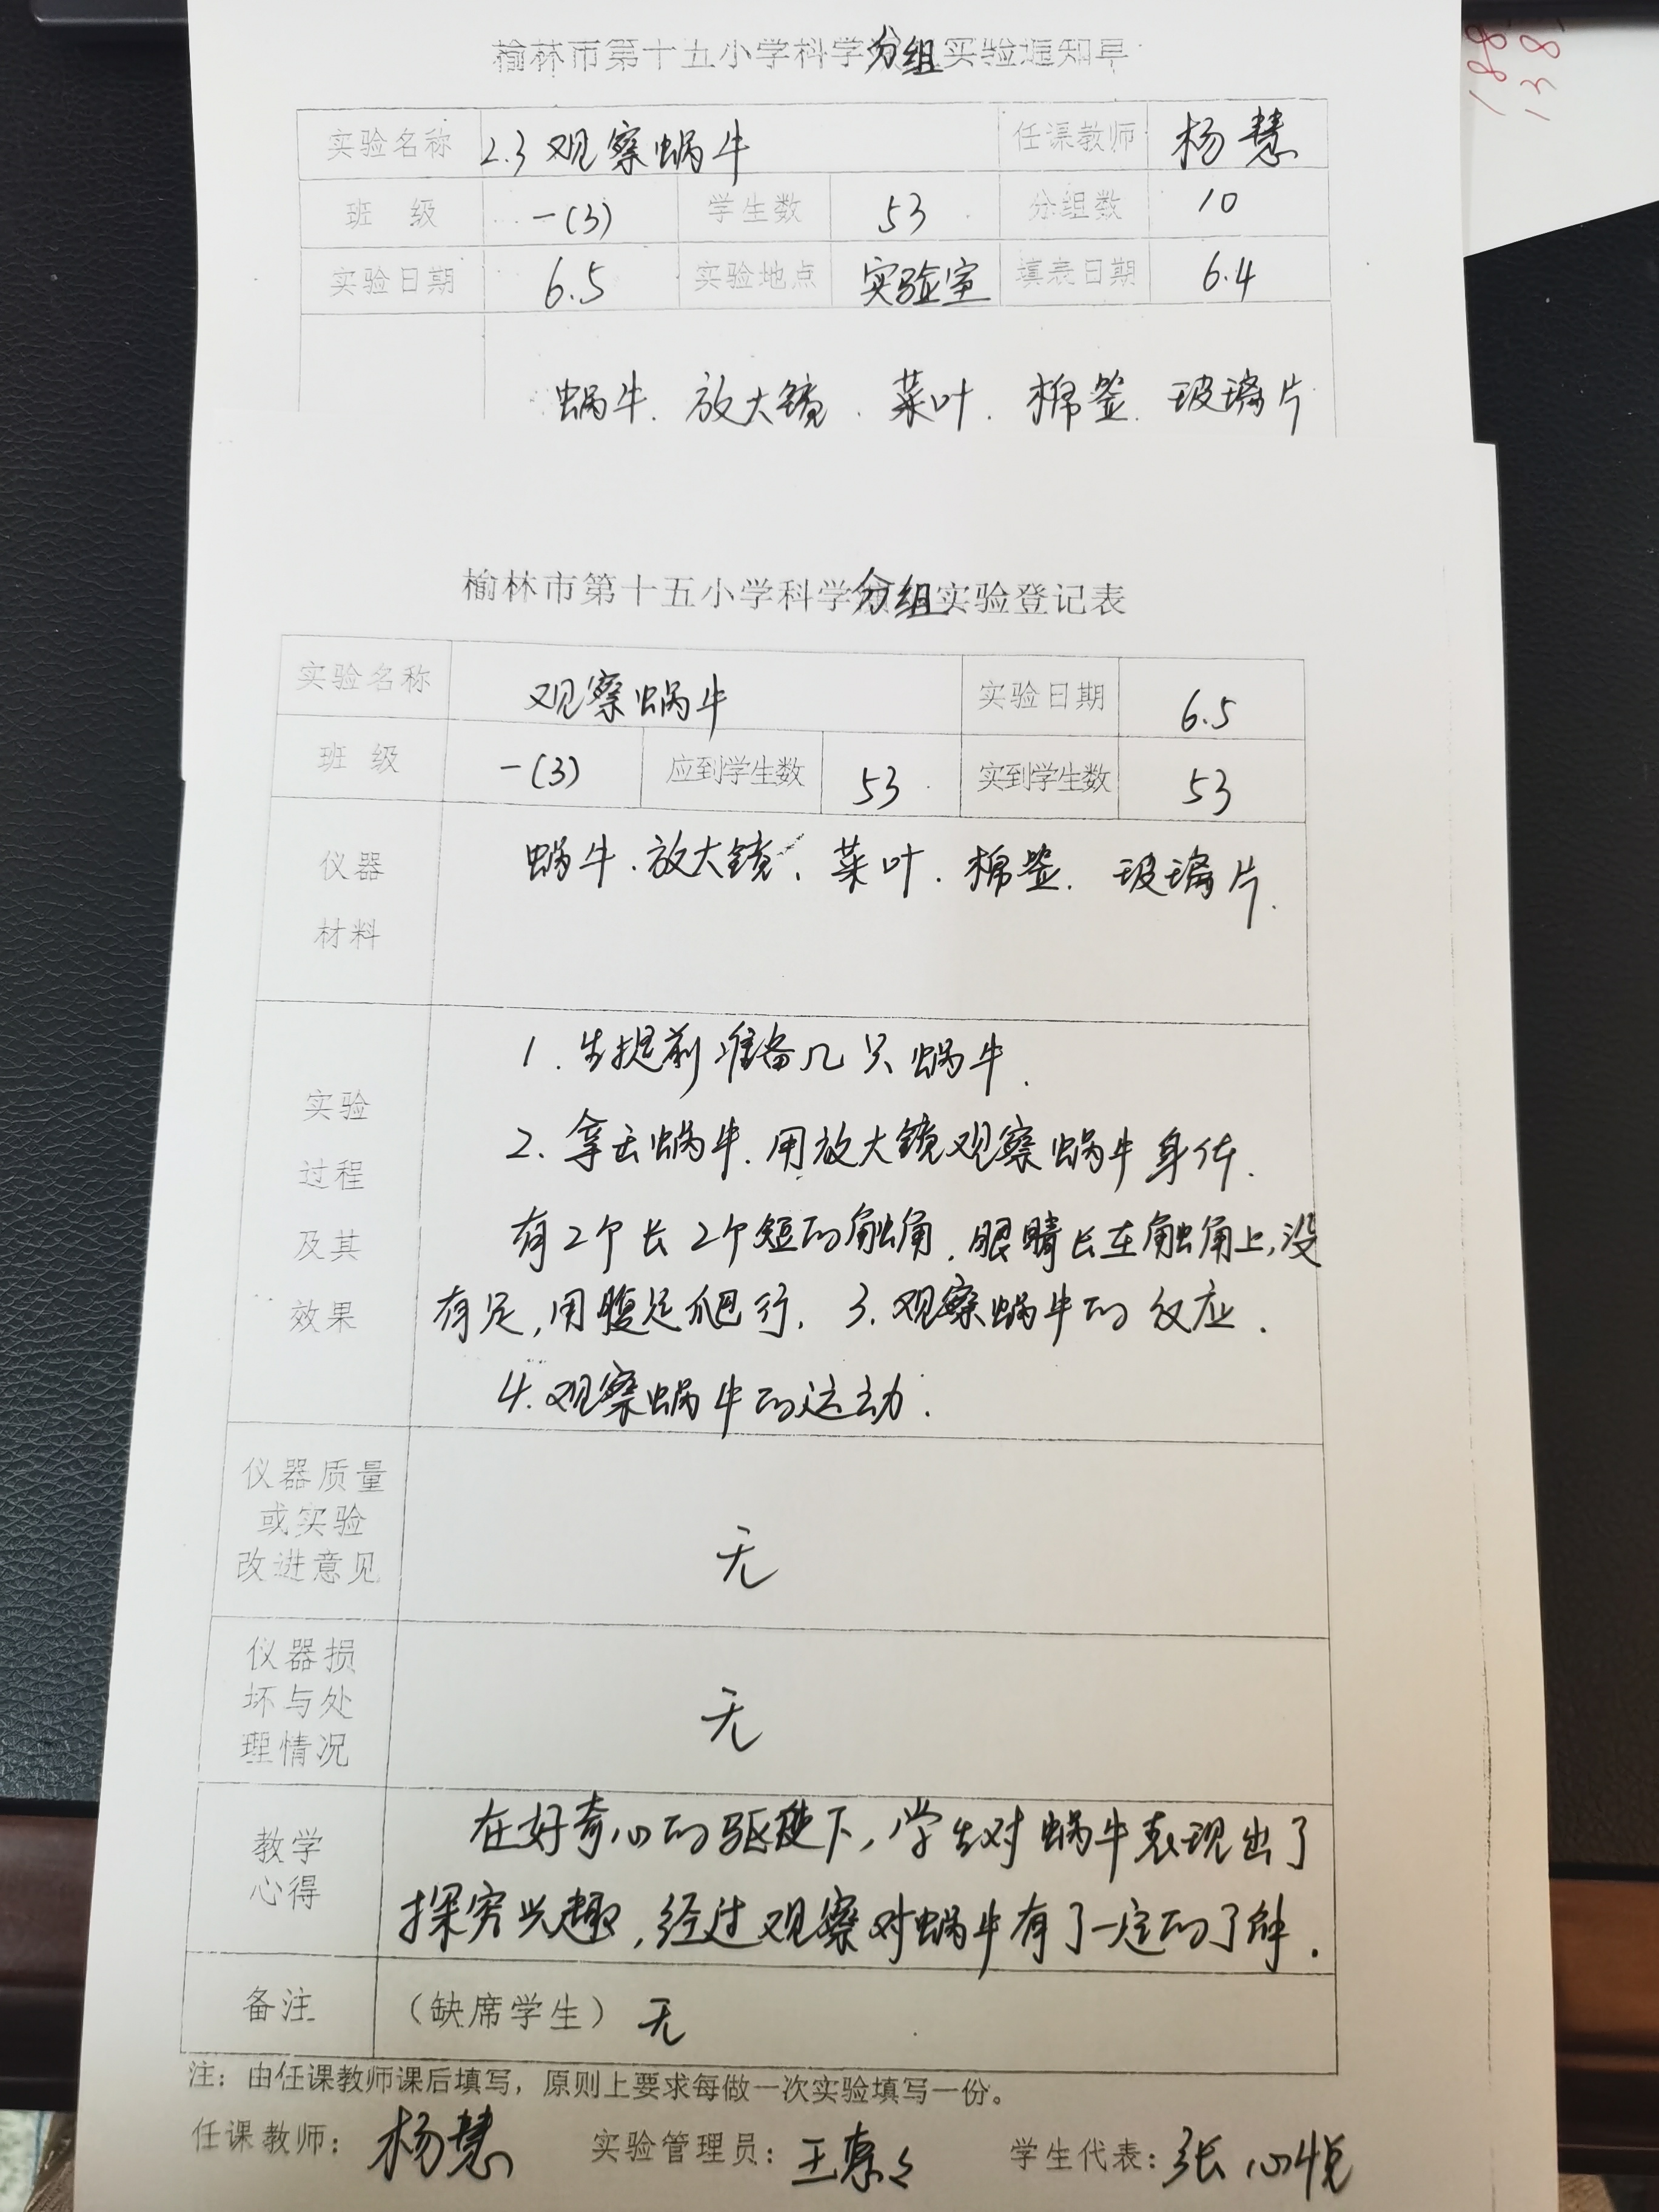 榆林市第十五小学科学分组实验通知单
实验名称 2.3 观察蜗牛 任课教师 杨慧
班 级 一(3) 学生数 53 分组数 10
实验日期 6.5 实验地点 实验室 填表日期 6.4
蜗牛.放大镜.菜叶.棉签.玻璃片
188
138
榆林市第十五小学科学分组实验登记表
实验名称 观察蜗牛 实验日期 6.5
班 级 一(3) 应到学生数 53 实到学生数 53
仪器
材料
蜗牛.放大镜、菜叶.棉签.玻璃片.
实验
过程
及其
效果
1.生提前准备几只蜗牛.
2.拿去蜗牛.用放大镜观察蜗牛身体.
有2个长2个短的触角.眼睛长在触角上,没
有足,用腹足爬行. 3.观察蜗牛的反应.
4.观察蜗牛的运动.
仪器质量
或实验
改进意见
无
仪器损
坏与处
理情况
无
教学
心得
在好奇心的驱使下,学生对蜗牛表现出了
探究兴趣,经过观察对蜗牛有了一定的了解.
备注 （缺席学生）无
注：由任课教师课后填写，原则上要求每做一次实验填写一份。
任课教师：杨慧 实验管理员：王 学生代表：张心悦